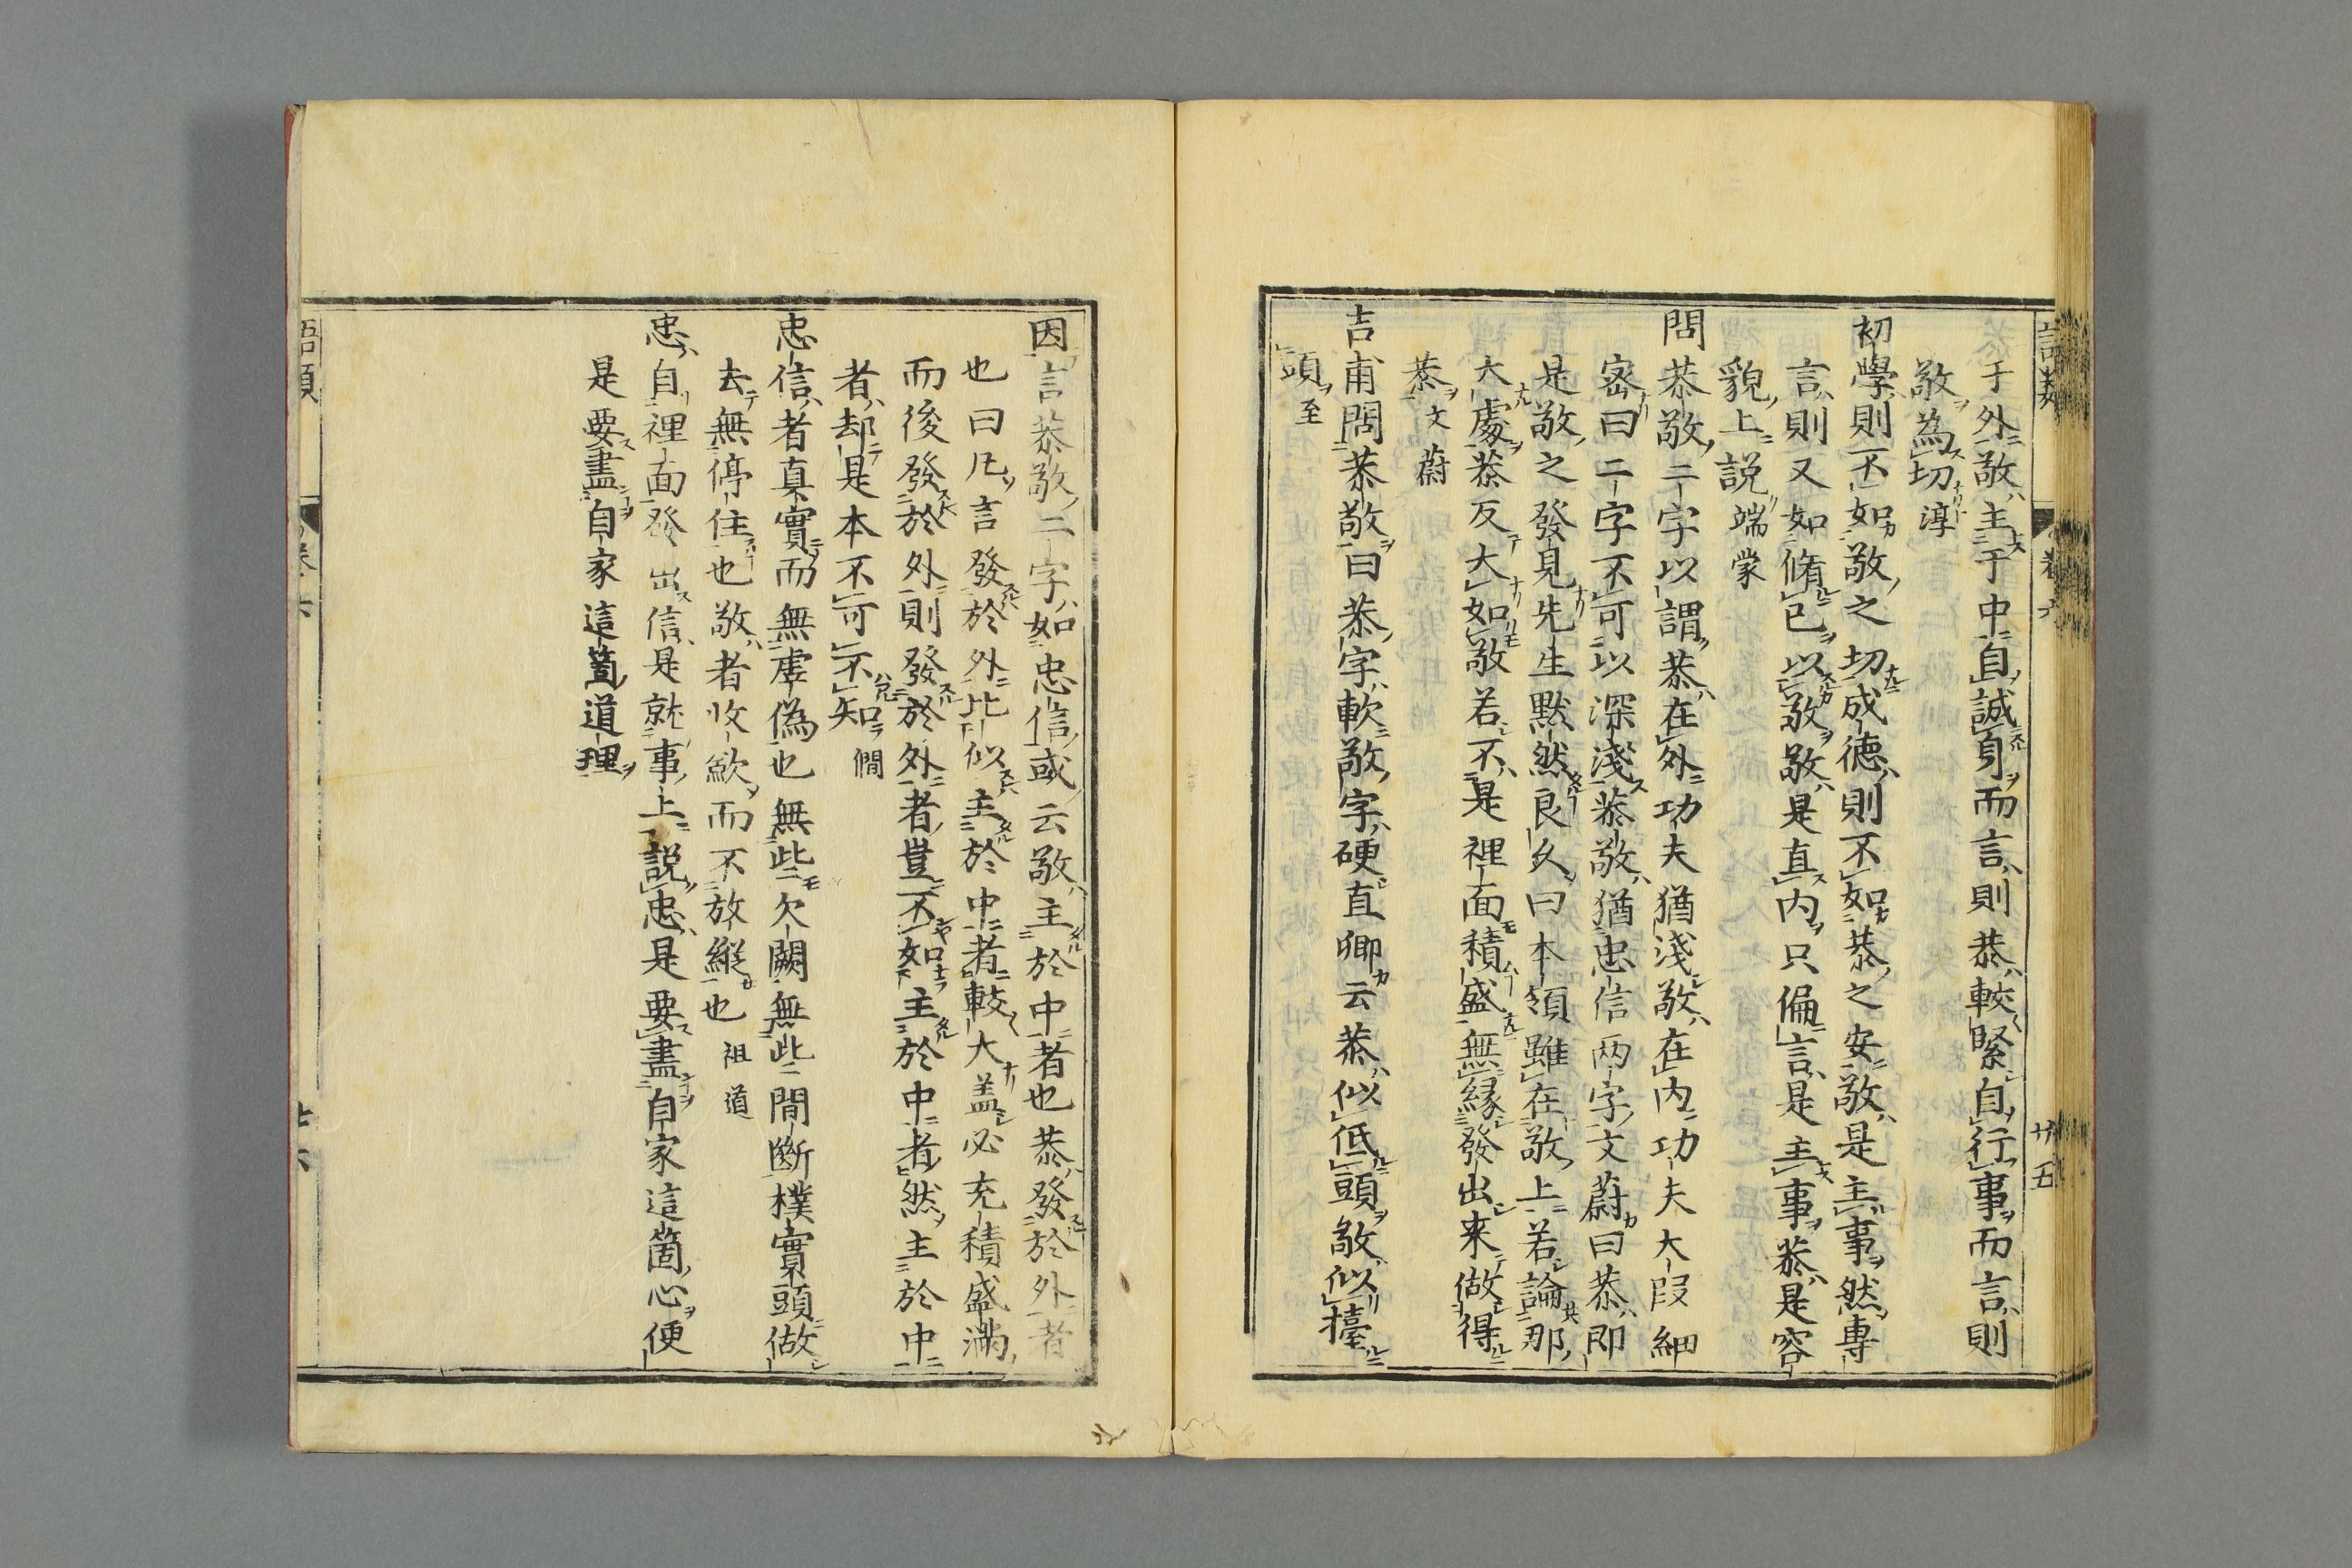 于外敬主于中自誠身而言則恭較緊自行事而言則
敬為切淳
初學則不如敬之切成德則不如恭之安敬是主事然專
言則又如脩已以敬敬是直內只偏言是主事恭是容
貌上説端蒙
問恭敬二字以謂恭在外功夫猶淺敬在內功夫大段細
密曰二字不可以深淺恭敬猶忠信两字文蔚曰恭即
是敬之發見先生默然良久曰本領雖在敬上若論那
大處恭反大如敬若不是裡面積盛無緣發出来做得
恭文蔚
吉甫問恭敬曰恭字軟敬字硬直卿云恭似低頭敬似擡
頭至
卷六
廿五
因言恭敬二字如忠信或云敬主於中者也恭發於外者
也曰凡言發於外比似主於中者較大盖必充積盛滿
而後發於外則發於外者豈不如主於中者然主於中
者却是本不可不知僩
忠信者真實而無虛偽也無些欠闕無些間斷樸實頭做
去無停住也敬者收斂而不放縱也祖道
忠自裡面發出信是就事上説忠是要盡自家這箇心便
是要盡自家這箇道理